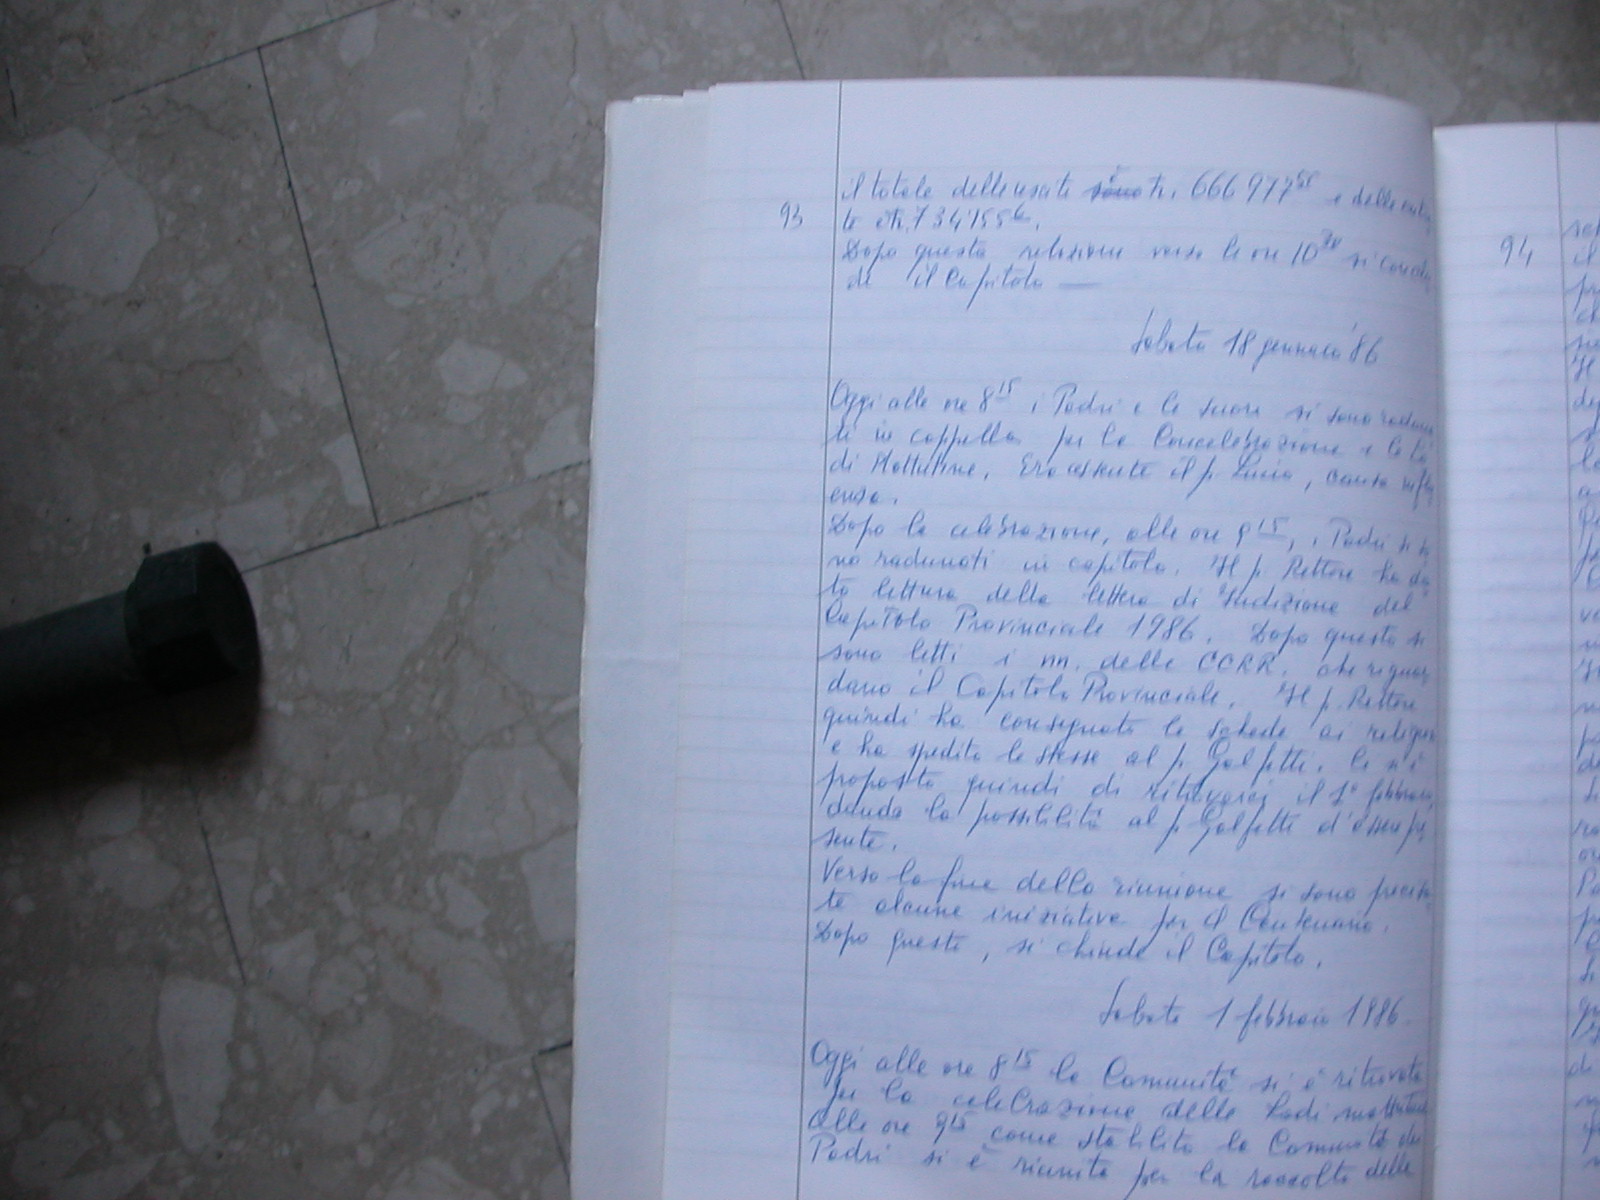 93
il totale delle uscite è £. 666977 e delle entra
te è £.
Dopo questa relazione verso le ore 10 si conclu
de il Capitolo
Sabato 18 gennaio '86
Oggi alle ore 8 15 i Padri e le suore si sono raduna
ti in cappella per la Concelebrazione e le Lo
di Mattutine. Era assente il p. Lucio, causa influ
enza.
Dopo la celebrazione, alle ore 9 15, i Padri si so
no radunati in capitolo. Il p. Rettore ha da
to lettura della lettera di Indizione del
Capitolo Provinciale 1986. Dopo questo si
sono letti i nn. delle CCRR. che riguar
dano il Capitolo Provinciale. Il p. Rettore
quindi ha consegnato le schede ai religiosi
e ha spedito le stesse al p. Galfetti. Ci si è
proposto quindi di ritrovarci il 1° febbraio,
dando la possibilità al p. Galfetti d'esser pre
sente.
Verso la fine della riunione si sono precisa
te alcune iniziative per il Centenario.
Dopo questo, si chiude il Capitolo.
Sabato 1 febbraio 1986
Oggi alle ore 8 15 la Comunità si è ritrovata
per la celebrazione delle Lodi mattutine
Alle ore 9 15 come stabilito la Comunità dei
Padri si è riunita per la raccolta delle
94